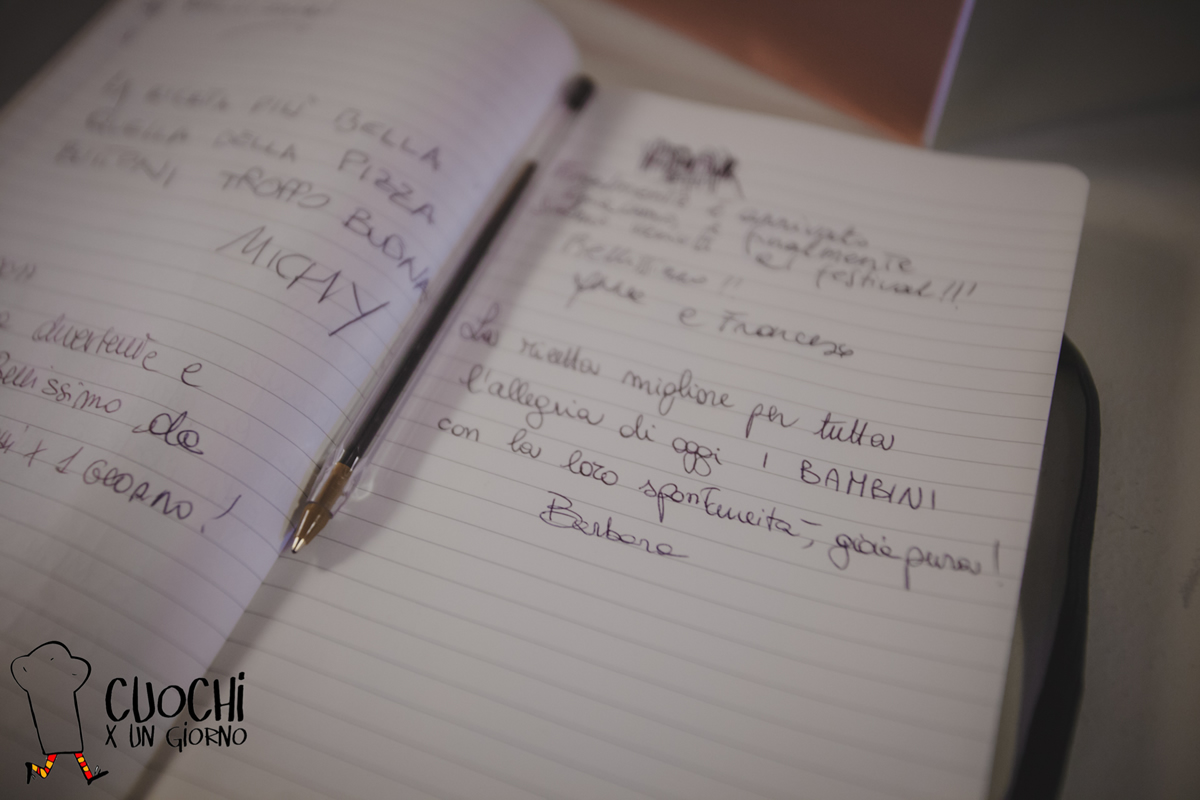 PIÙ BELLA
QUELLA DELLA PIZZA
BUITONI TROPPO BUONA
MICHY
divertente e
Bellissimo da
x 1 GIORNO!
è arrivato
finalmente
festival!!!
Bellissimo!!
e Francesco
La ricetta migliore per tutta
l'allegria di oggi i BAMBINI
con la loro spontaneità, gioia pura!
Barbara
CUOCHi
X UN GiORNO